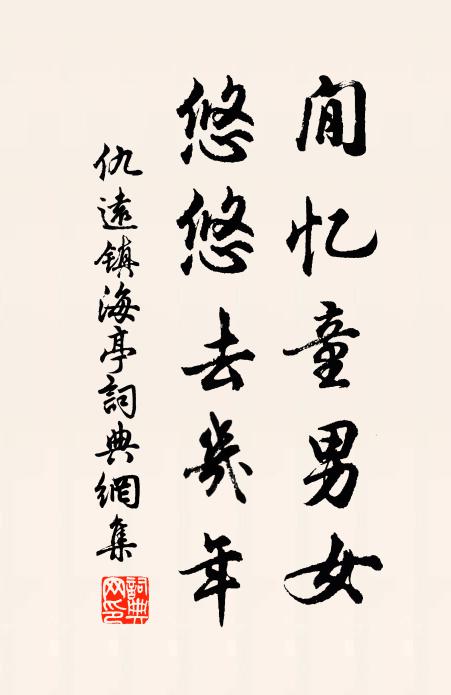 闲忆童男女
悠悠去几年
仇遠鎮海亭詞典網集
詞典网印